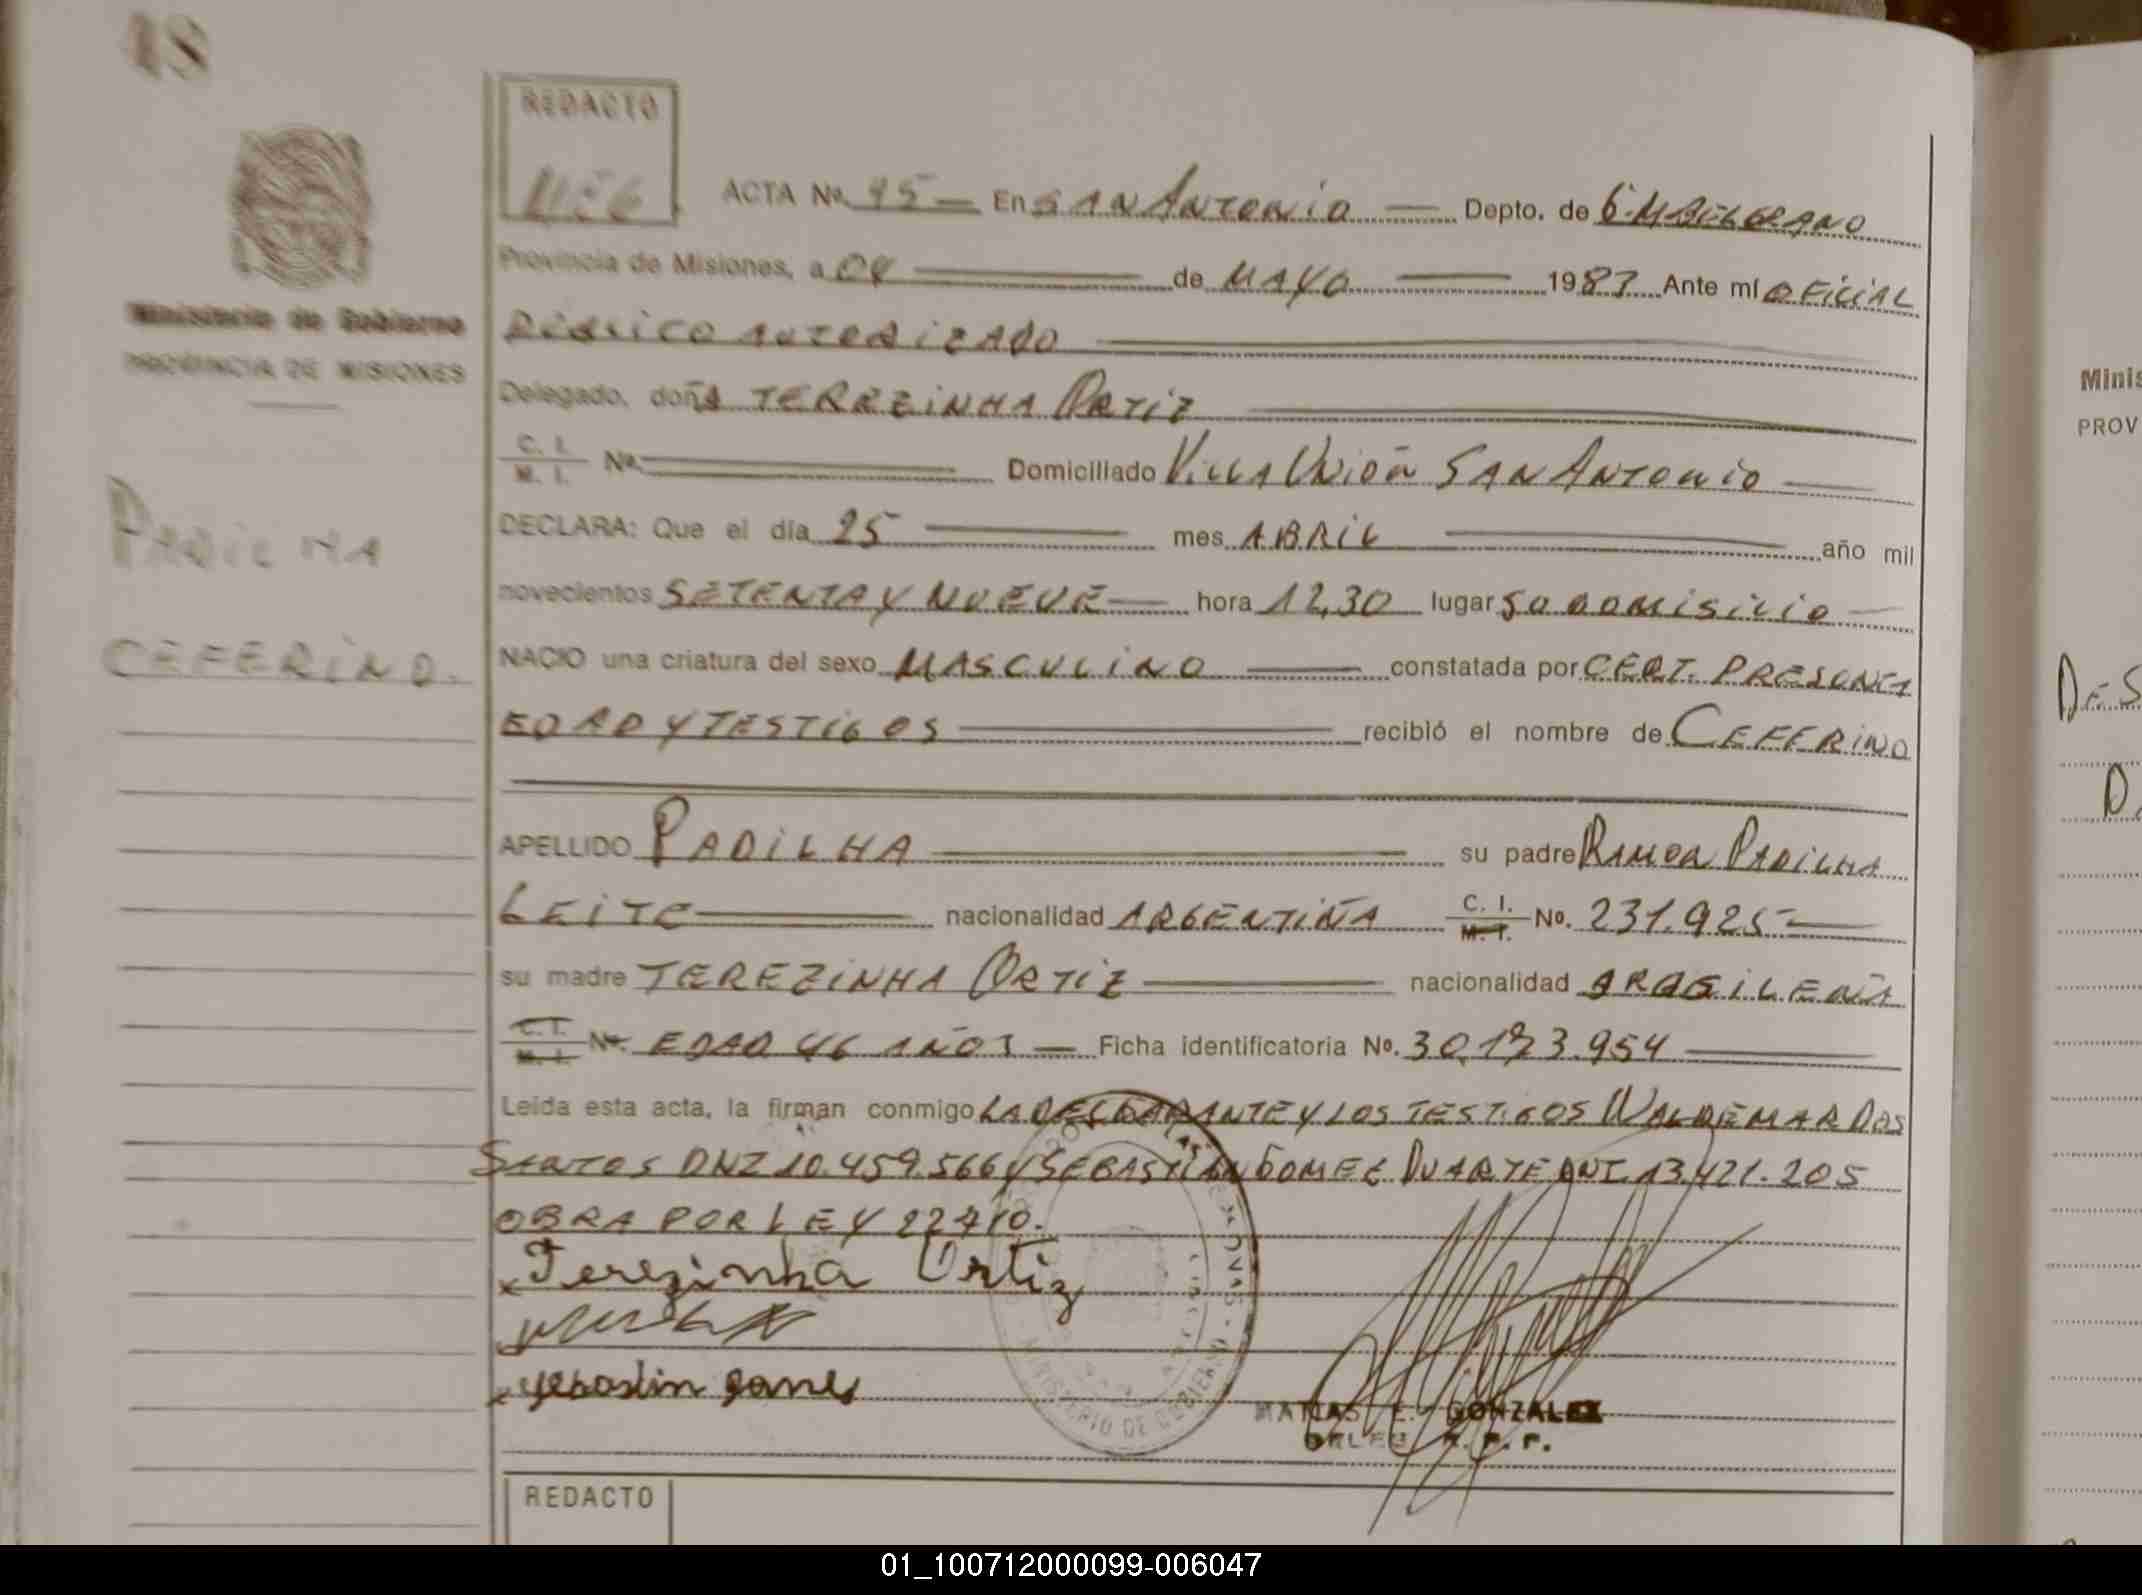 48
REDACTO
MEG
ACTA Nº 95 En SAN ANTONIO Depto. de G. M BELGRANO
Provincia de Misiones, a 04 de MAYO 1987 Ante mí OFICIAL
PÚBLICO AUTORIZADO
Delegado, doña TEREZINHA ORTIZ
C. I.
M. I. Nº Domiciliado VILLA UNIÓN SAN ANTONIO
DECLARA: Que el día 25 mes ABRIL año mil
novecientos SETENTA Y NUEVE hora 12,30 lugar SU DOMISILIO
NACIO una criatura del sexo MASCULINO constatada por CERT. PRESUNTA
EDAD Y TESTIGOS recibió el nombre de CEFERINO
APELLIDO PADILHA su padre RAMON PADILHA
LEITE nacionalidad ARGENTINA C. I.
M. I. Nº. 231.925
su madre TEREZINHA ORTIZ nacionalidad BRASILEÑA
C. I.
M. I. Nº. EDAD 46 AÑOS Ficha identificatoria Nº. 30.173.954
Leída esta acta, la firman conmigo LA DECLARANTE Y LOS TESTIGOS WALDEMAR DOS
SANTOS DNI 10.459.566 y SEBASTIAN GOMEZ DUARTE DNI. 13.421.205
OBRA POR LEY 22410.
x Terezinha Ortiz
x Sebastin gomes
MATIAS E. GONZALEZ
R. P. P.
REDACTO
Ministerio de Gobierno
PROVINCIA DE MISIONES
PADILHA
CEFERINO.
MINISTERIO DE GOBIERNO
Minis
PROV
DES
D
01_100712000099-006047